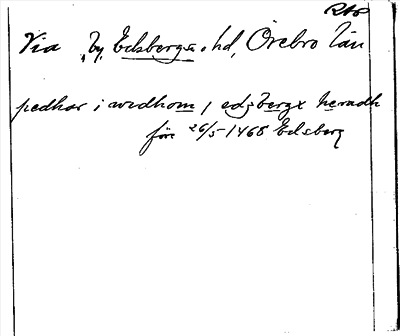 RAp
Via by, Edsbergs hd, Örebro län
pedhar i wedhom j edzbergx heradh
före 26/5 1468 Edsberg